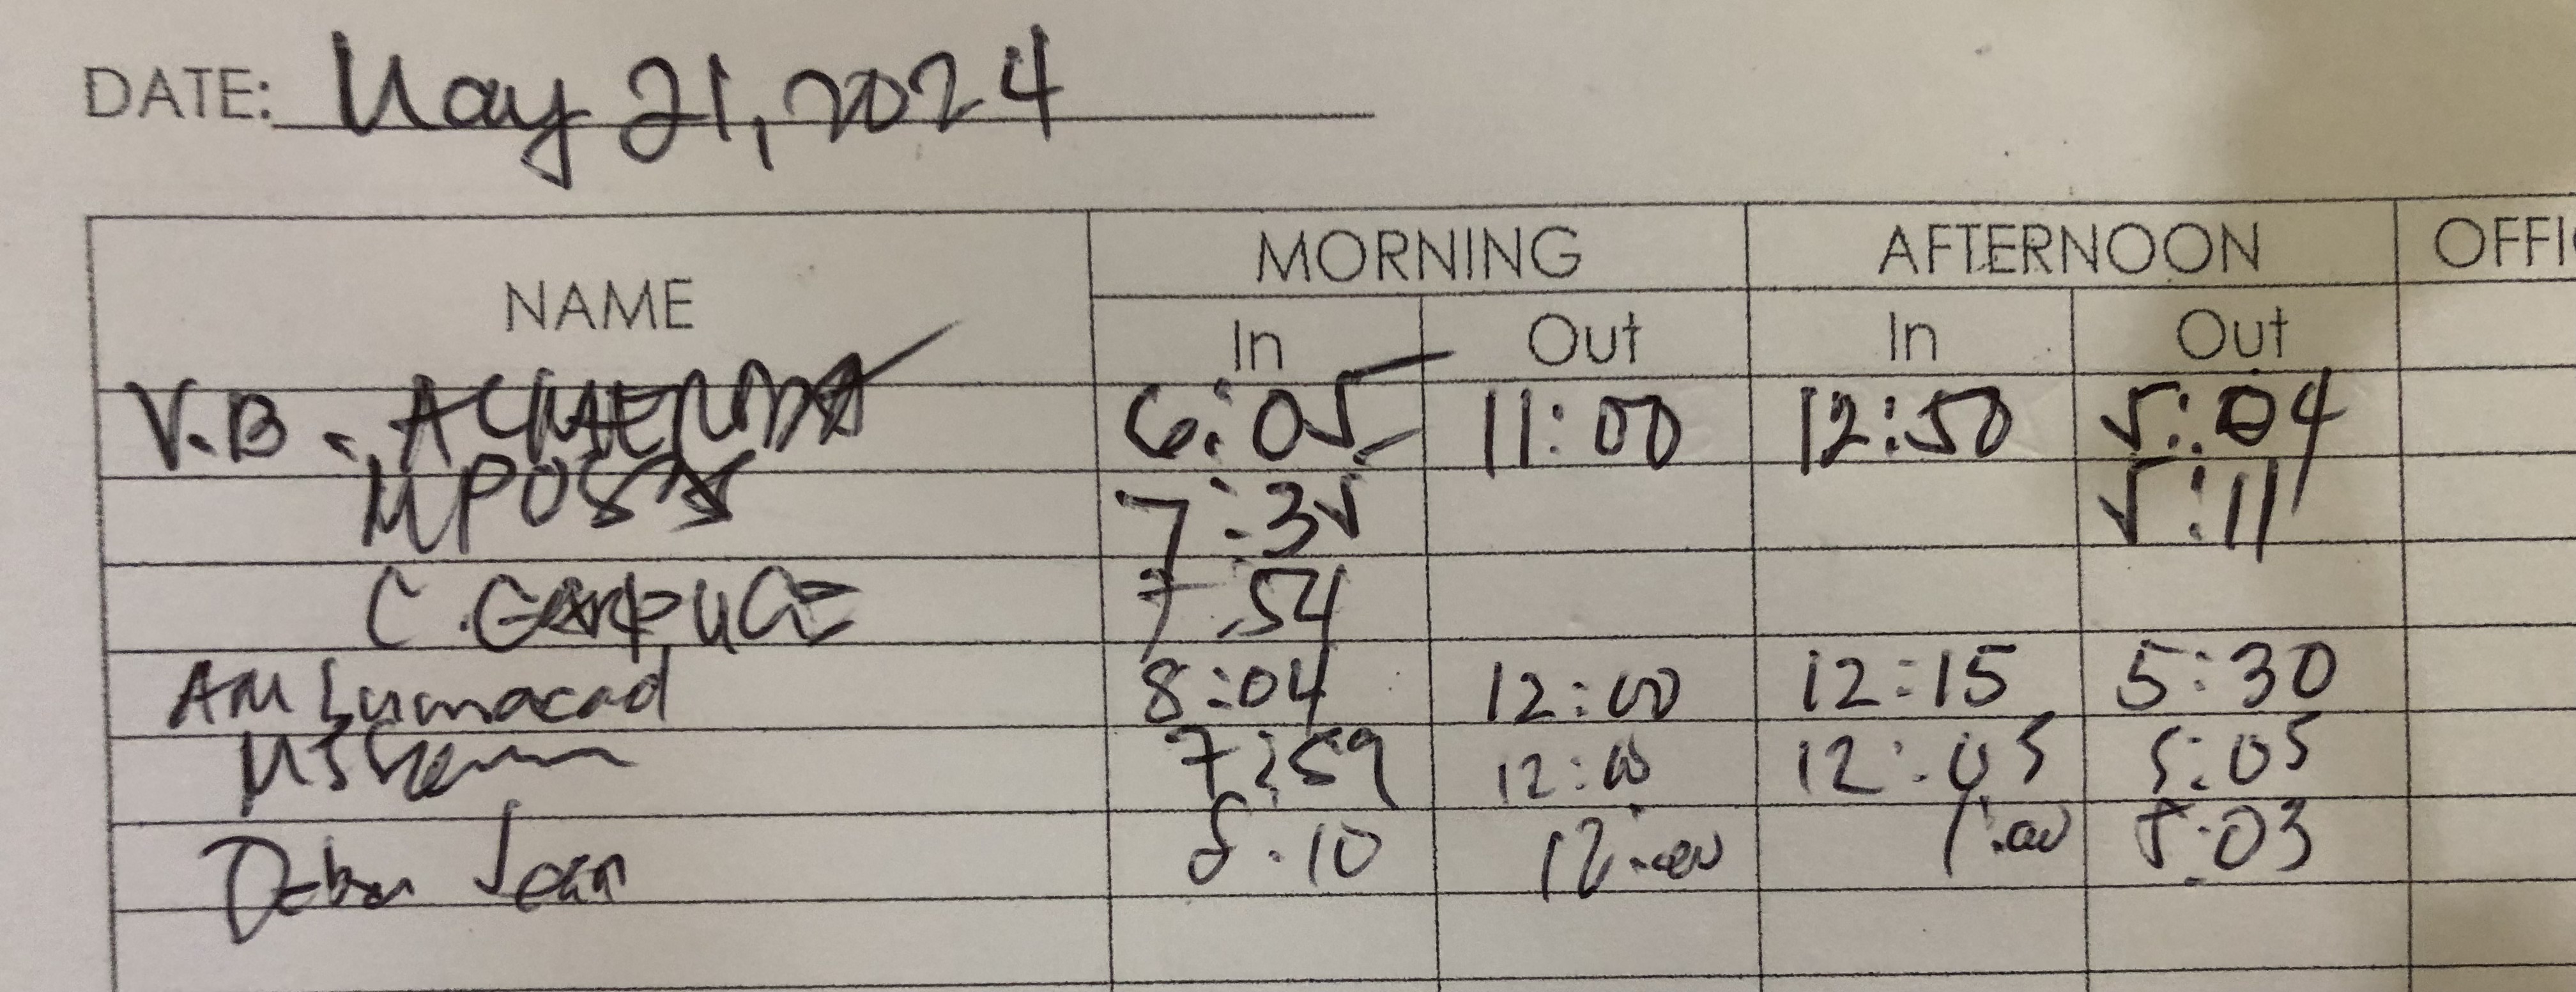 DATE: May 21, 2024
NAME MORNING AFTERNOON OFFI
In Out In Out
V.B. 6:05 11:00 12:50 5:04
7:35 5:11
C. 7:54
AM Lumacad 8:04 12:00 12:15 5:30
7:59 12:00 12:05 5:05
Jean 8:10 12:00 1:00 5:03